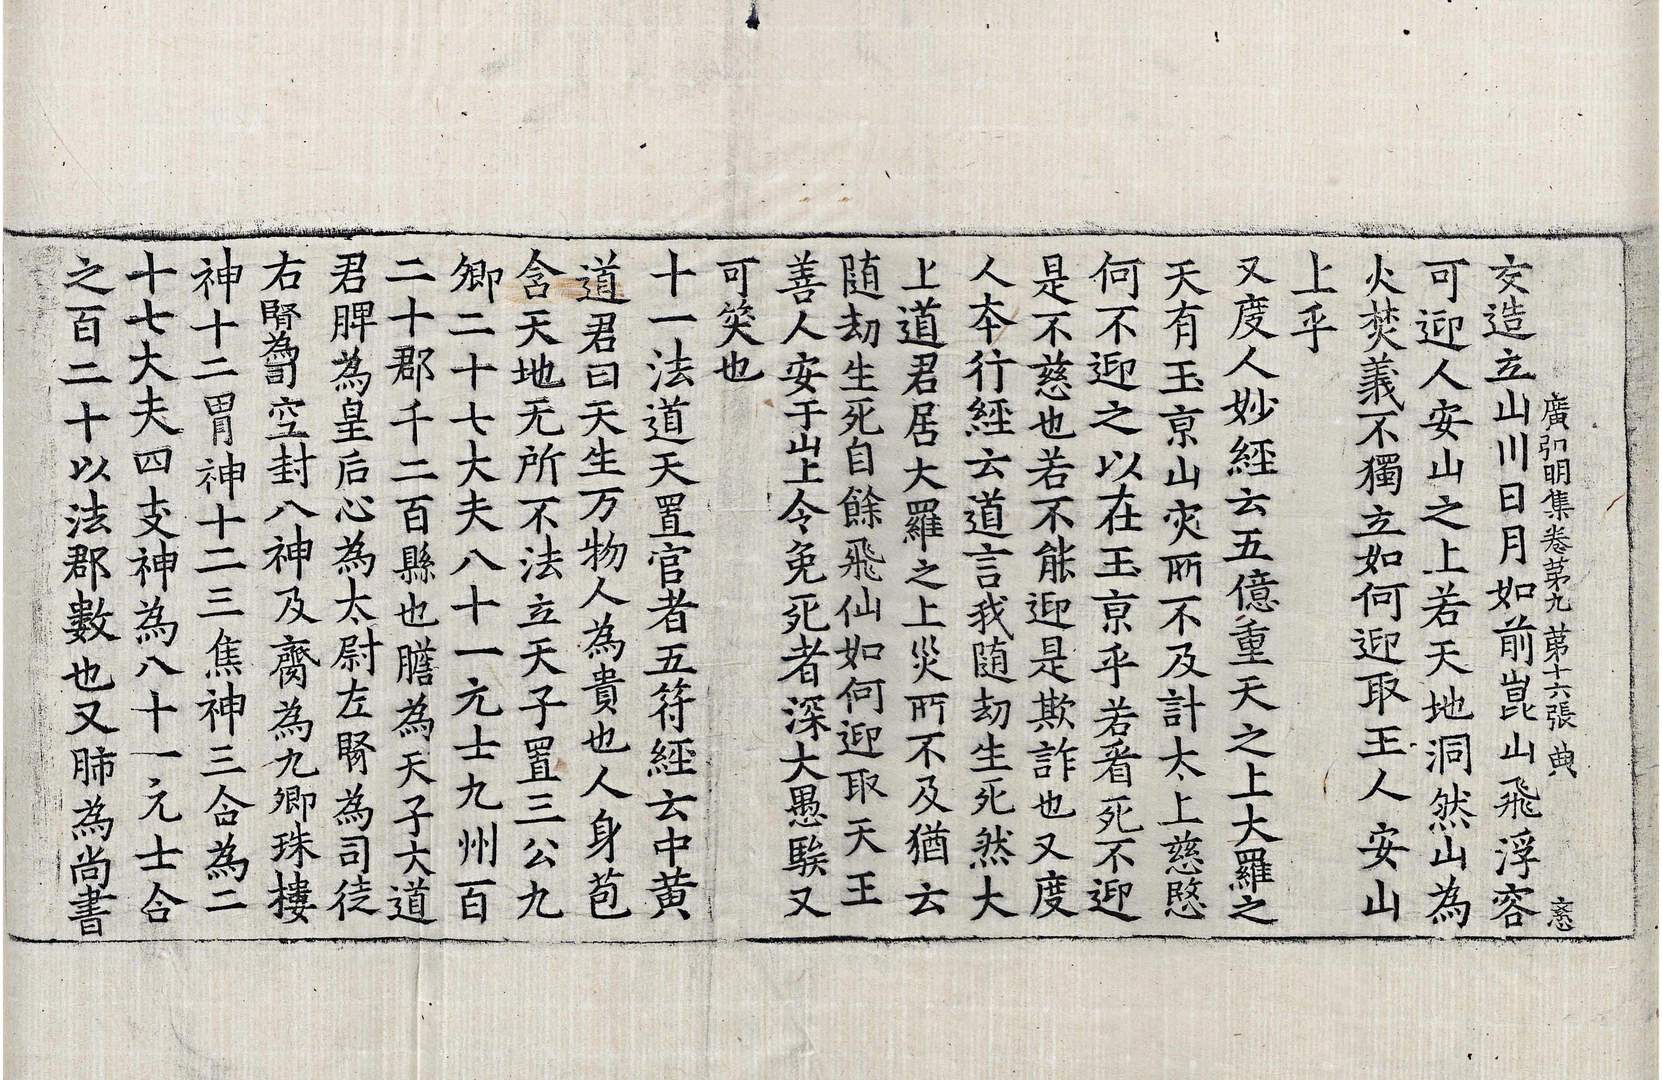 廣弘明集卷苐九 苐十六張 典 㥽
交造立山川日月如前崑山飛浮容
可迎人安山之上若天地洞然山為
火焚義不獨立如何迎取王人安山
上乎
又度人妙經云五億重天之上大羅之
天有玉京山灾所不及計太上慈愍
何不迎之以在玉京乎若看死不迎
是不慈也若不能迎是欺詐也又度
人夲行經云道言我随劫生死然大
上道君居大羅之上災所不及猶云
随劫生死自餘飛仙如何迎取天王
善人安于山上令免死者深大愚騃又
可笑也
十一法道天置官者五符經云中黄
道君曰天生万物人為貴也人身苞
含天地无所不法立天子置三公九
卿二十七大夫八十一元士九州百
二十郡千二百縣也膽為天子大道
君脾為皇后心為太尉左腎為司徒
右腎為司空封八神及齎為九卿珠樓
神十二胃神十二三焦神三合為二
十七大夫四支神為八十一元士合
之百二十以法郡數也又肺為尚書